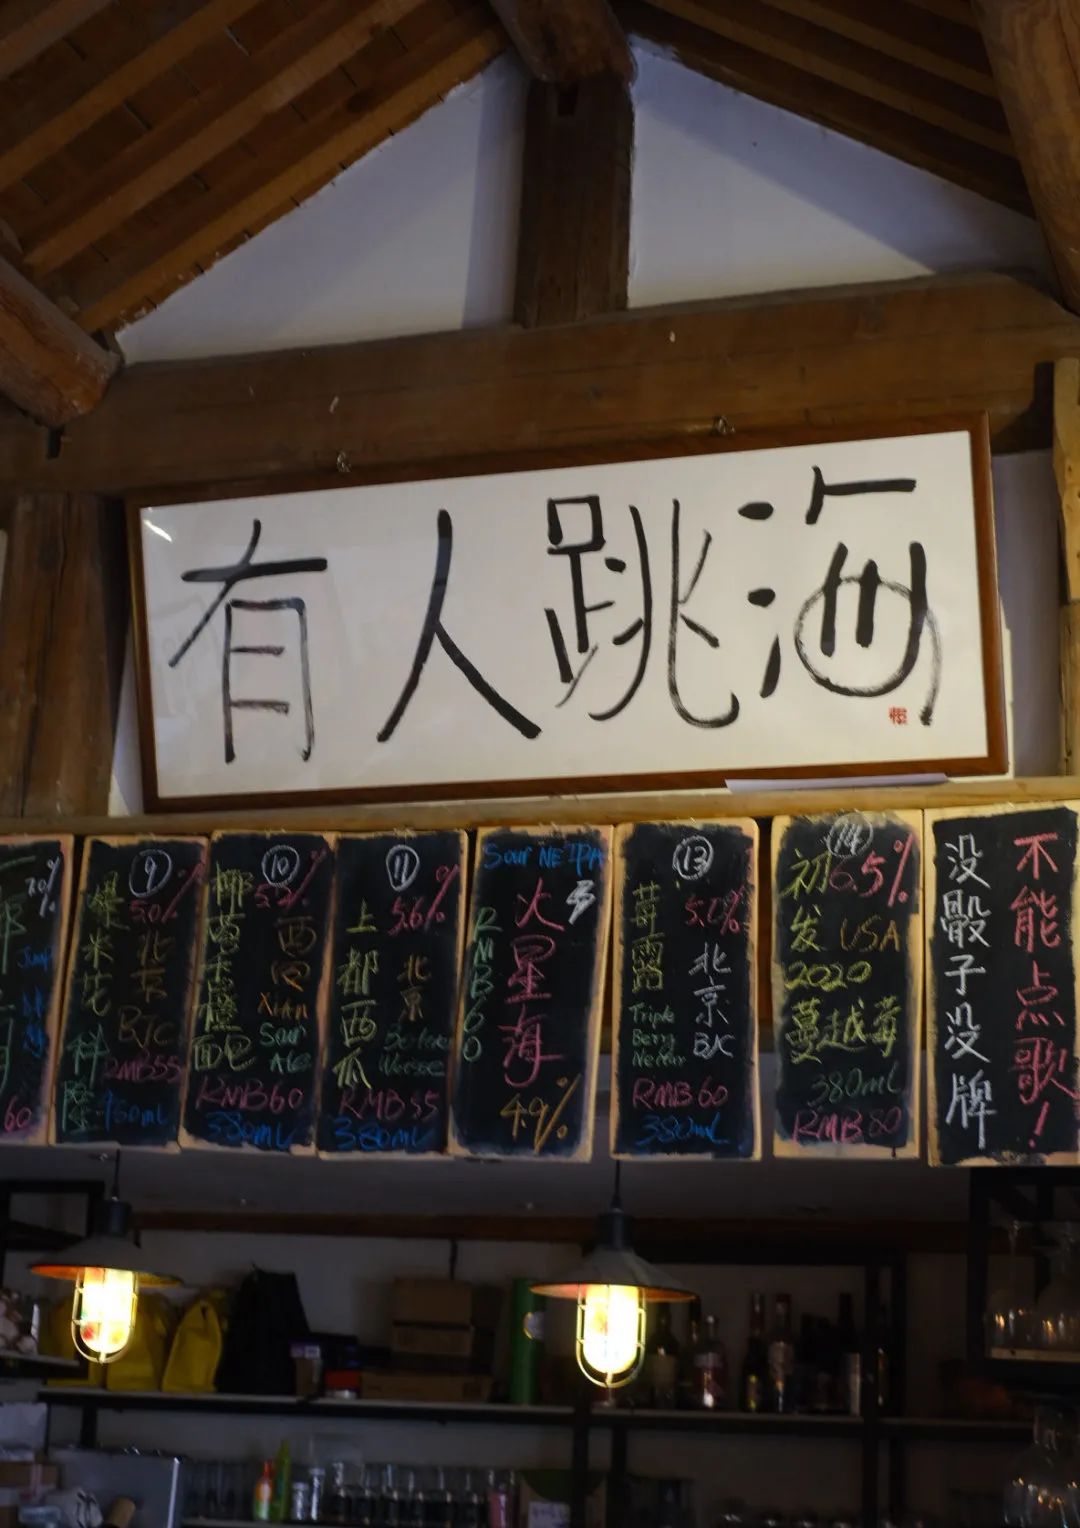 有人跳海
60
⑨
5.0%
爆米花科隆
北京
BJC
RMB55
⑩
椰
西安
Xian
Sour
Ale
RMB60
380mL
⑪
5.6%
上都西瓜
北京
RMB55
380mL
Sour NEIPA
火星海
RMB60
4.9%
⑬
莓露
5.0%
北京
BJC
Triple
Berry
Nectar
RMB60
380mL
⑭
6.5%
初发
USA
2020
蔓越莓
380mL
RMB80
不能点歌!
没骰子没牌